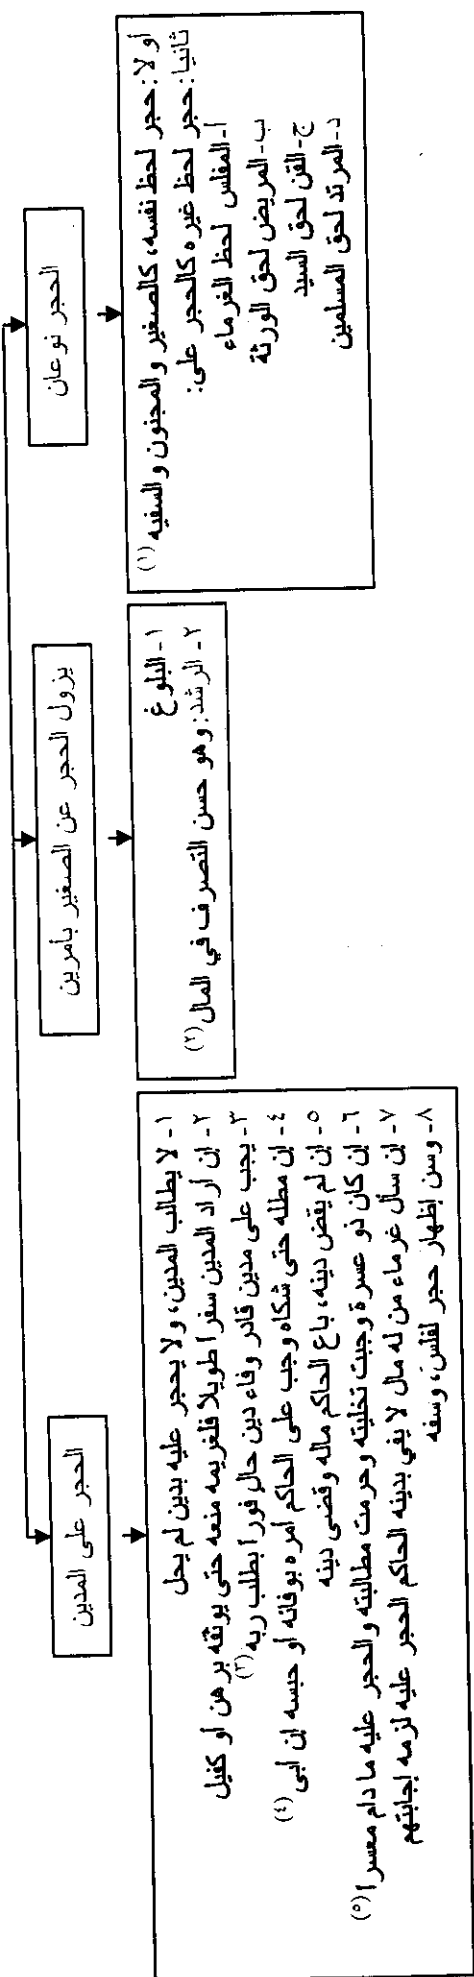 الحجر نوعان
أولا: حجر لحظ نفسه، كالصغير والمجنون والسفيه (١)
ثانيا: حجر لحظ غيره كالحجر على:
أ- المفلس لحظ الغرماء
ب- المريض لحق الورثة
ج- القن لحق السيد
د- المرتد لحق المسلمين
يزول الحجر عن الصغير بأمرين
١- البلوغ
٢- الرشد: وهو حسن التصرف في المال (٢)
الحجر على المدين
١- لا يطالب المدين، ولا يحجر عليه بدين لم يحل
٢- إن أراد المدين سفرا طويلا فلغريمه منعه حتى يوثقه برهن أو كفيل
٣- يجب على مدين قادر وفاء دين حال فورا بطلب ربه (٣)
٤- إن مطله حتى شكاه وجب على الحاكم أمره بوفائه أو حبسه إن أبى (٤)
٥- إن لم يقض دينه، باع الحاكم ماله وقضى دينه
٦- إن كان ذو عسرة وجبت تخليته وحرمت مطالبته والحجر عليه ما دام معسرا (٥)
٧- إن سأل غرماء من له مال لا يفي بدينه الحاكم الحجر عليه لزمه إجابتهم
٨- وسن إظهار حجر لفلس، وسفه